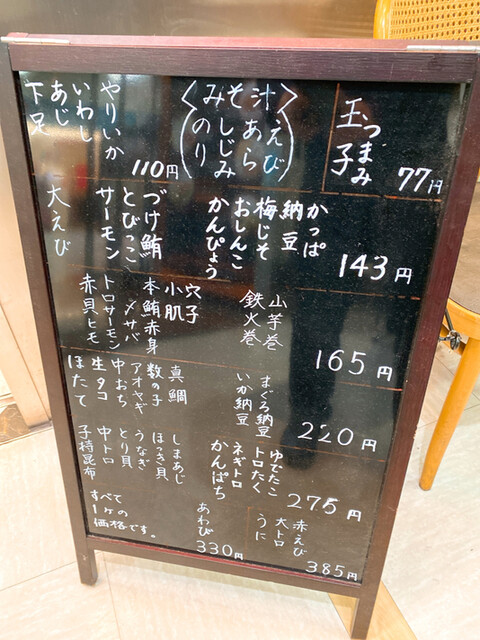 つまみ
玉子
77円
〈みそ汁〉
えび
あら
しじみ
のり
110円
やりいか
いわし
あじ
下足
かっぱ
納豆
梅じそ
おしんこ
かんぴょう
143円
づけ鮪
とびっこ
サーモン
大えび
山芋巻
鉄火巻
165円
穴子
小肌
本鮪赤身
〆サバ
トロサーモン
赤貝ヒモ
まぐろ納豆
いか納豆
220円
真鯛
数の子
アオヤギ
中おち
生タコ
ほたて
ゆでたこ
トロたく
ネギトロ
かんぱち
275円
しまあじ
ほっき貝
うなぎ
とり貝
中トロ
子持昆布
赤えび
大トロ
うに
385円
あわび
330円
すべて
1ヶの
価格です。